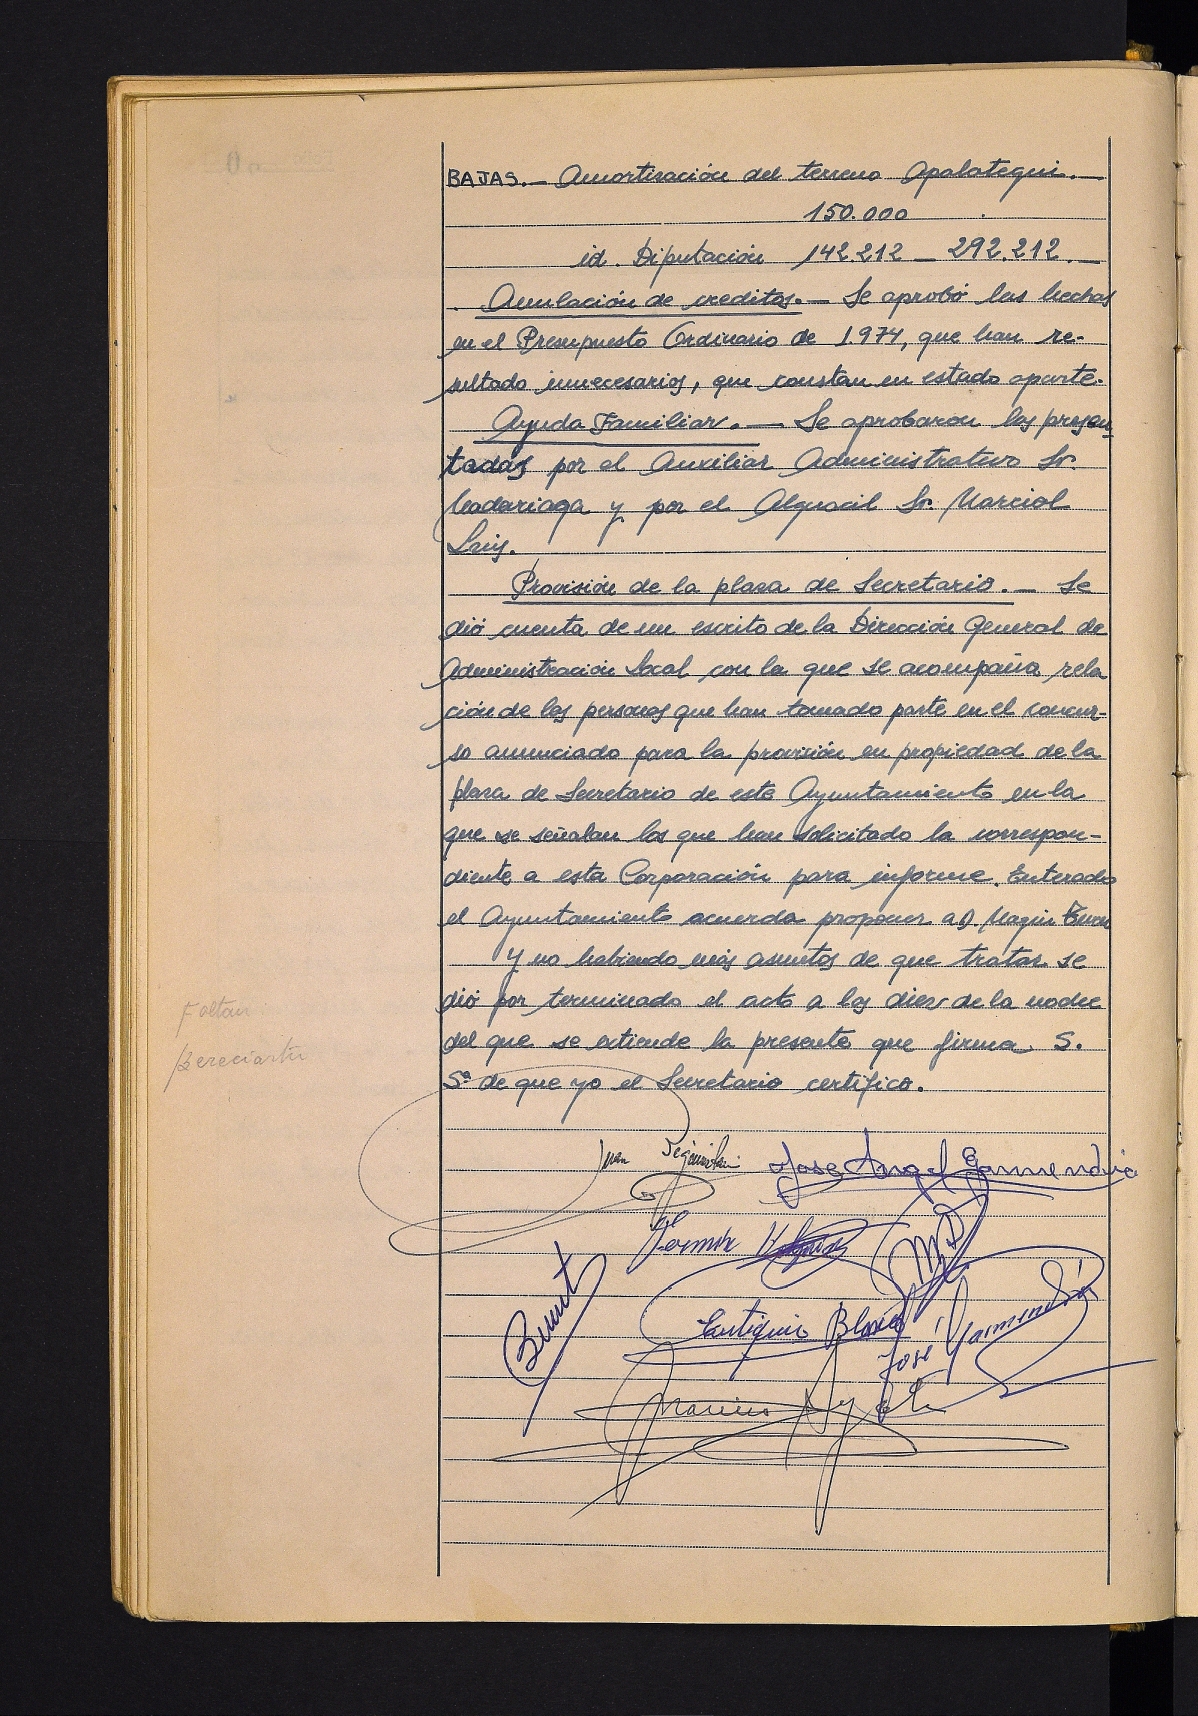 BAJAS.— Amortización del terreno Apalategui.—
150.000
id. Diputación 142.212 — 292.212.—
Anulación de creditos.— Se aprobó las hechas
en el Presupuesto Ordinario de 1.974, que han re-
sultado innecesarios, que constan en estado aparte.
Ayuda Familiar.— Se aprobaron las presen-
tadas por el Auxiliar Administrativo Sr.
Madariaga y por el Alguacil Sr. Marcial
Luis.
Provisión de la plaza de Secretario.— Se
dió cuenta de un escrito de la Dirección General de
Administración Local con la que se acompaña rela
ción de las personas que han tomado parte en el concur-
so anunciado para la provisión en propiedad de la
plaza de Secretario de este Ayuntamiento en la
que se señalan los que han solicitado la correspon-
diente a esta Corporación para informe. Enterado
el Ayuntamiento acuerda proponer a D. Magin
Y no habiendo más asuntos de que tratar se
dió por terminado el acto a las diez de la noche
del que se extiende la presente que firma S.
Sª de que yo el Secretario certifico.
Faltan
Bereciartu
Juan
Jose Angel Garmendia
Eutiquio Blanco
José Garmendia